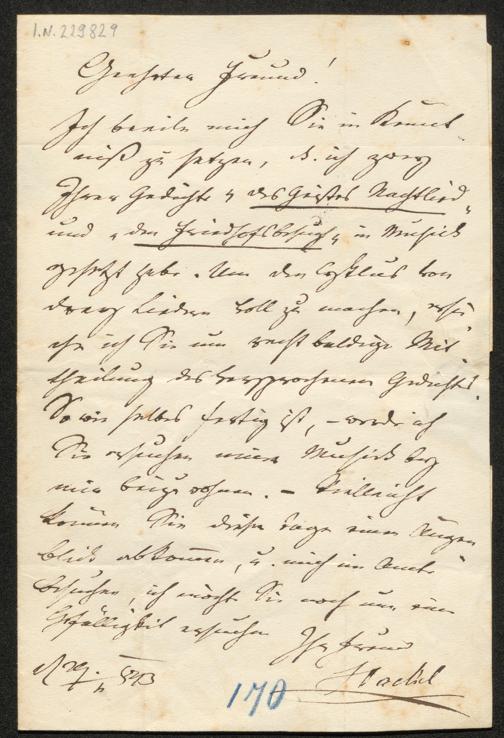 I.N. 229829
Geehrter Freund!
Ich beeile mich Sie in Kennt-
niß zu setzen, d. ich zwey
Ihrer Gedichte „des Geistes Nachtlied„
und „den Friedhofsbesuch„ in Musick
gesetzt habe. Um den Cyklus von
drey Liedern voll zu machen, ersu-
che ich Sie um recht baldige Mit-
theilung des versprochenen Gedichts.
So wie selbes fertig ist, – werde ich
Sie ersuchen einer Musick bey
mir beyzuwohnen. – Vielleicht
können Sie dieser Tage einen Augen-
blick abkommen, u. mich im Amte
besuchen, ich möchte Sie noch um eine
Gefälligkeit ersuchen
Ihr Freund
Hackel
843
170